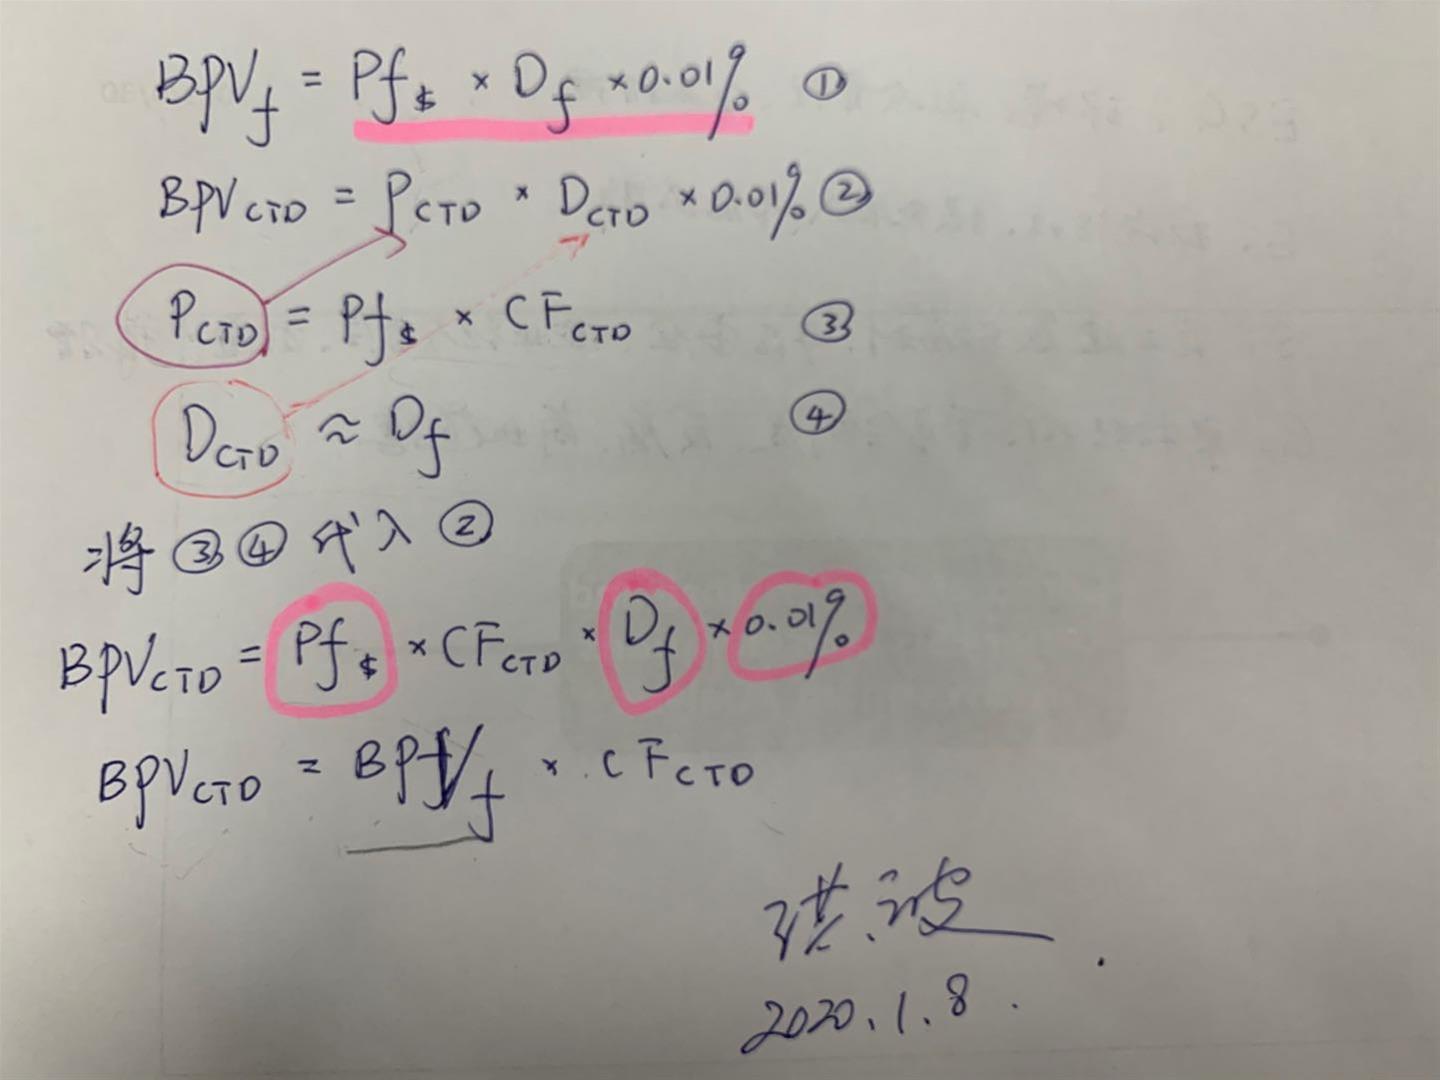 BPV_f = Pf_$ × D_f × 0.01% ①
BPV_CTD = P_CTD × D_CTD × 0.01% ②
P_CTD = Pf_$ × CF_CTD ③
D_CTD ≈ D_f ④
将③④代入②
BPV_CTD = Pf_$ × CF_CTD × D_f × 0.01%
BPV_CTD = BPV_f × CF_CTD
2020.1.8.